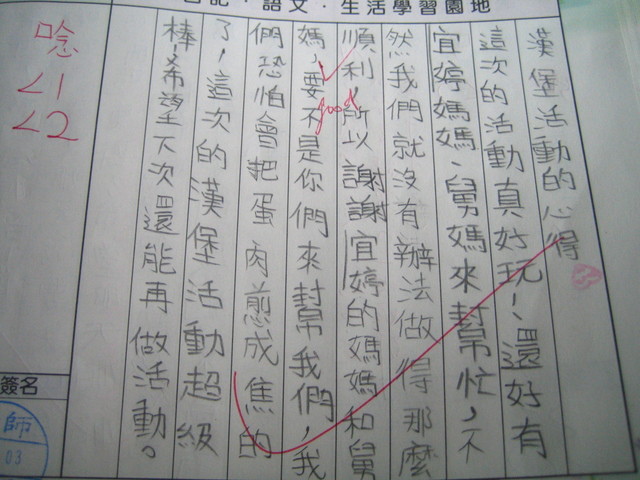 日記·語文·生活學習園地
漢堡活動的心得
這次的活動真好玩!還好有
宜婷媽媽、舅媽來幫忙,不
然我們就沒有辦法做得那麼
順利,所以謝謝宜婷的媽媽和舅
媽,要不是你們來幫我們,我
們恐怕會把蛋肉煎成焦的
了!這次的漢堡活動超級
棒!希望下次還能再做活動。
good
唸
<1
<2
簽名
師
03